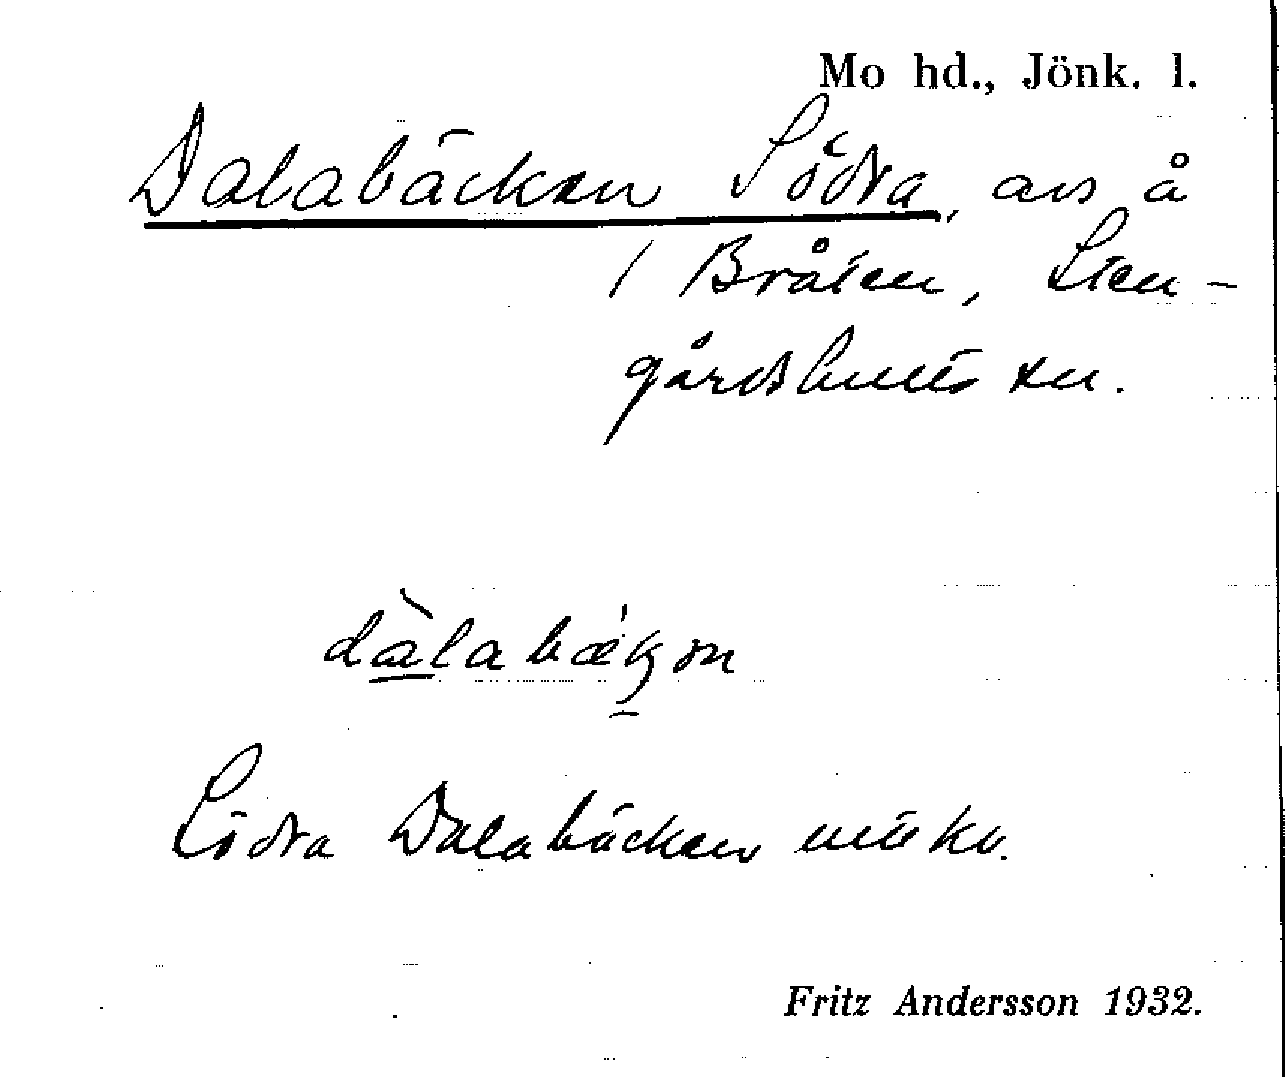 Mo hd., Jönk. l.
Dalabäcken Södra, avs å
1 Bråten, Sten-
gårdshults sn.
dàlabækon
Södra Dalabäcken
Fritz Andersson 1932.